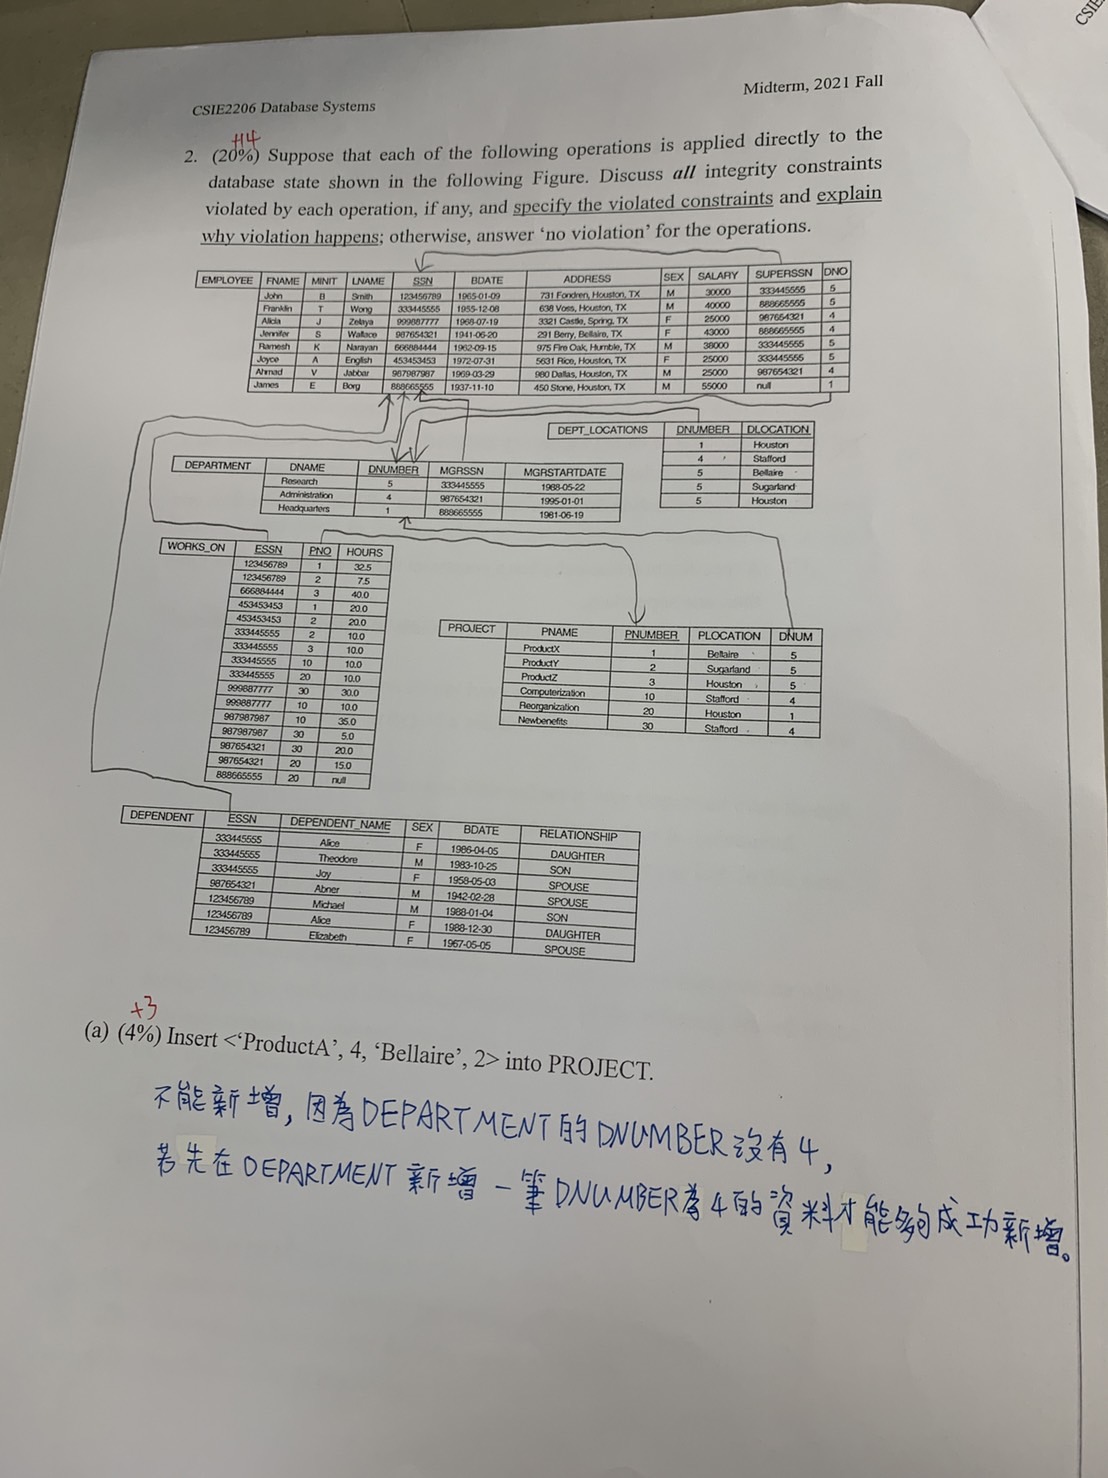 CSIE
CSIE2206 Database Systems
Midterm, 2021 Fall
+14
2. (20%) Suppose that each of the following operations is applied directly to the
database state shown in the following Figure. Discuss all integrity constraints
violated by each operation, if any, and specify the violated constraints and explain
why violation happens; otherwise, answer ‘no violation’ for the operations.
EMPLOYEE FNAME MINIT LNAME SSN BDATE ADDRESS SEX SALARY SUPERSSN DNO
John B Smith 123456789 1965-01-09 731 Fondren, Houston, TX M 30000 333445555 5
Franklin T Wong 333445555 1955-12-08 638 Voss, Houston, TX M 40000 888665555 5
Alicia J Zelaya 999887777 1968-07-19 3321 Castle, Spring, TX F 25000 987654321 4
Jennifer S Wallace 987654321 1941-06-20 291 Berry, Bellaire, TX F 43000 888665555 4
Ramesh K Narayan 666884444 1962-09-15 975 Fire Oak, Humble, TX M 38000 333445555 5
Joyce A English 453453453 1972-07-31 5631 Rice, Houston, TX F 25000 333445555 5
Ahmad V Jabbar 987987987 1969-03-29 980 Dallas, Houston, TX M 25000 987654321 4
James E Borg 888665555 1937-11-10 450 Stone, Houston, TX M 55000 null 1
DEPT_LOCATIONS DNUMBER DLOCATION
1 Houston
4 Stafford
5 Bellaire
5 Sugarland
5 Houston
DEPARTMENT DNAME DNUMBER MGRSSN MGRSTARTDATE
Research 5 333445555 1988-05-22
Administration 4 987654321 1995-01-01
Headquarters 1 888665555 1981-06-19
WORKS_ON ESSN PNO HOURS
123456789 1 32.5
123456789 2 7.5
666884444 3 40.0
453453453 1 20.0
453453453 2 20.0
333445555 2 10.0
333445555 3 10.0
333445555 10 10.0
333445555 20 10.0
999887777 30 30.0
999887777 10 10.0
987987987 10 35.0
987987987 30 5.0
987654321 30 20.0
987654321 20 15.0
888665555 20 null
PROJECT PNAME PNUMBER PLOCATION DNUM
ProductX 1 Bellaire 5
ProductY 2 Sugarland 5
ProductZ 3 Houston 5
Computerization 10 Stafford 4
Reorganization 20 Houston 1
Newbenefits 30 Stafford 4
DEPENDENT ESSN DEPENDENT_NAME SEX BDATE RELATIONSHIP
333445555 Alice F 1986-04-05 DAUGHTER
333445555 Theodore M 1983-10-25 SON
333445555 Joy F 1958-05-03 SPOUSE
987654321 Abner M 1942-02-28 SPOUSE
123456789 Michael M 1988-01-04 SON
123456789 Alice F 1988-12-30 DAUGHTER
123456789 Elizabeth F 1967-05-05 SPOUSE
+3
(a) (4%) Insert <‘ProductA’, 4, ‘Bellaire’, 2> into PROJECT.
不能新增,因為DEPARTMENT的DNUMBER沒有4,
若先在DEPARTMENT新增一筆DNUMBER為4的資料才能夠成功新增。